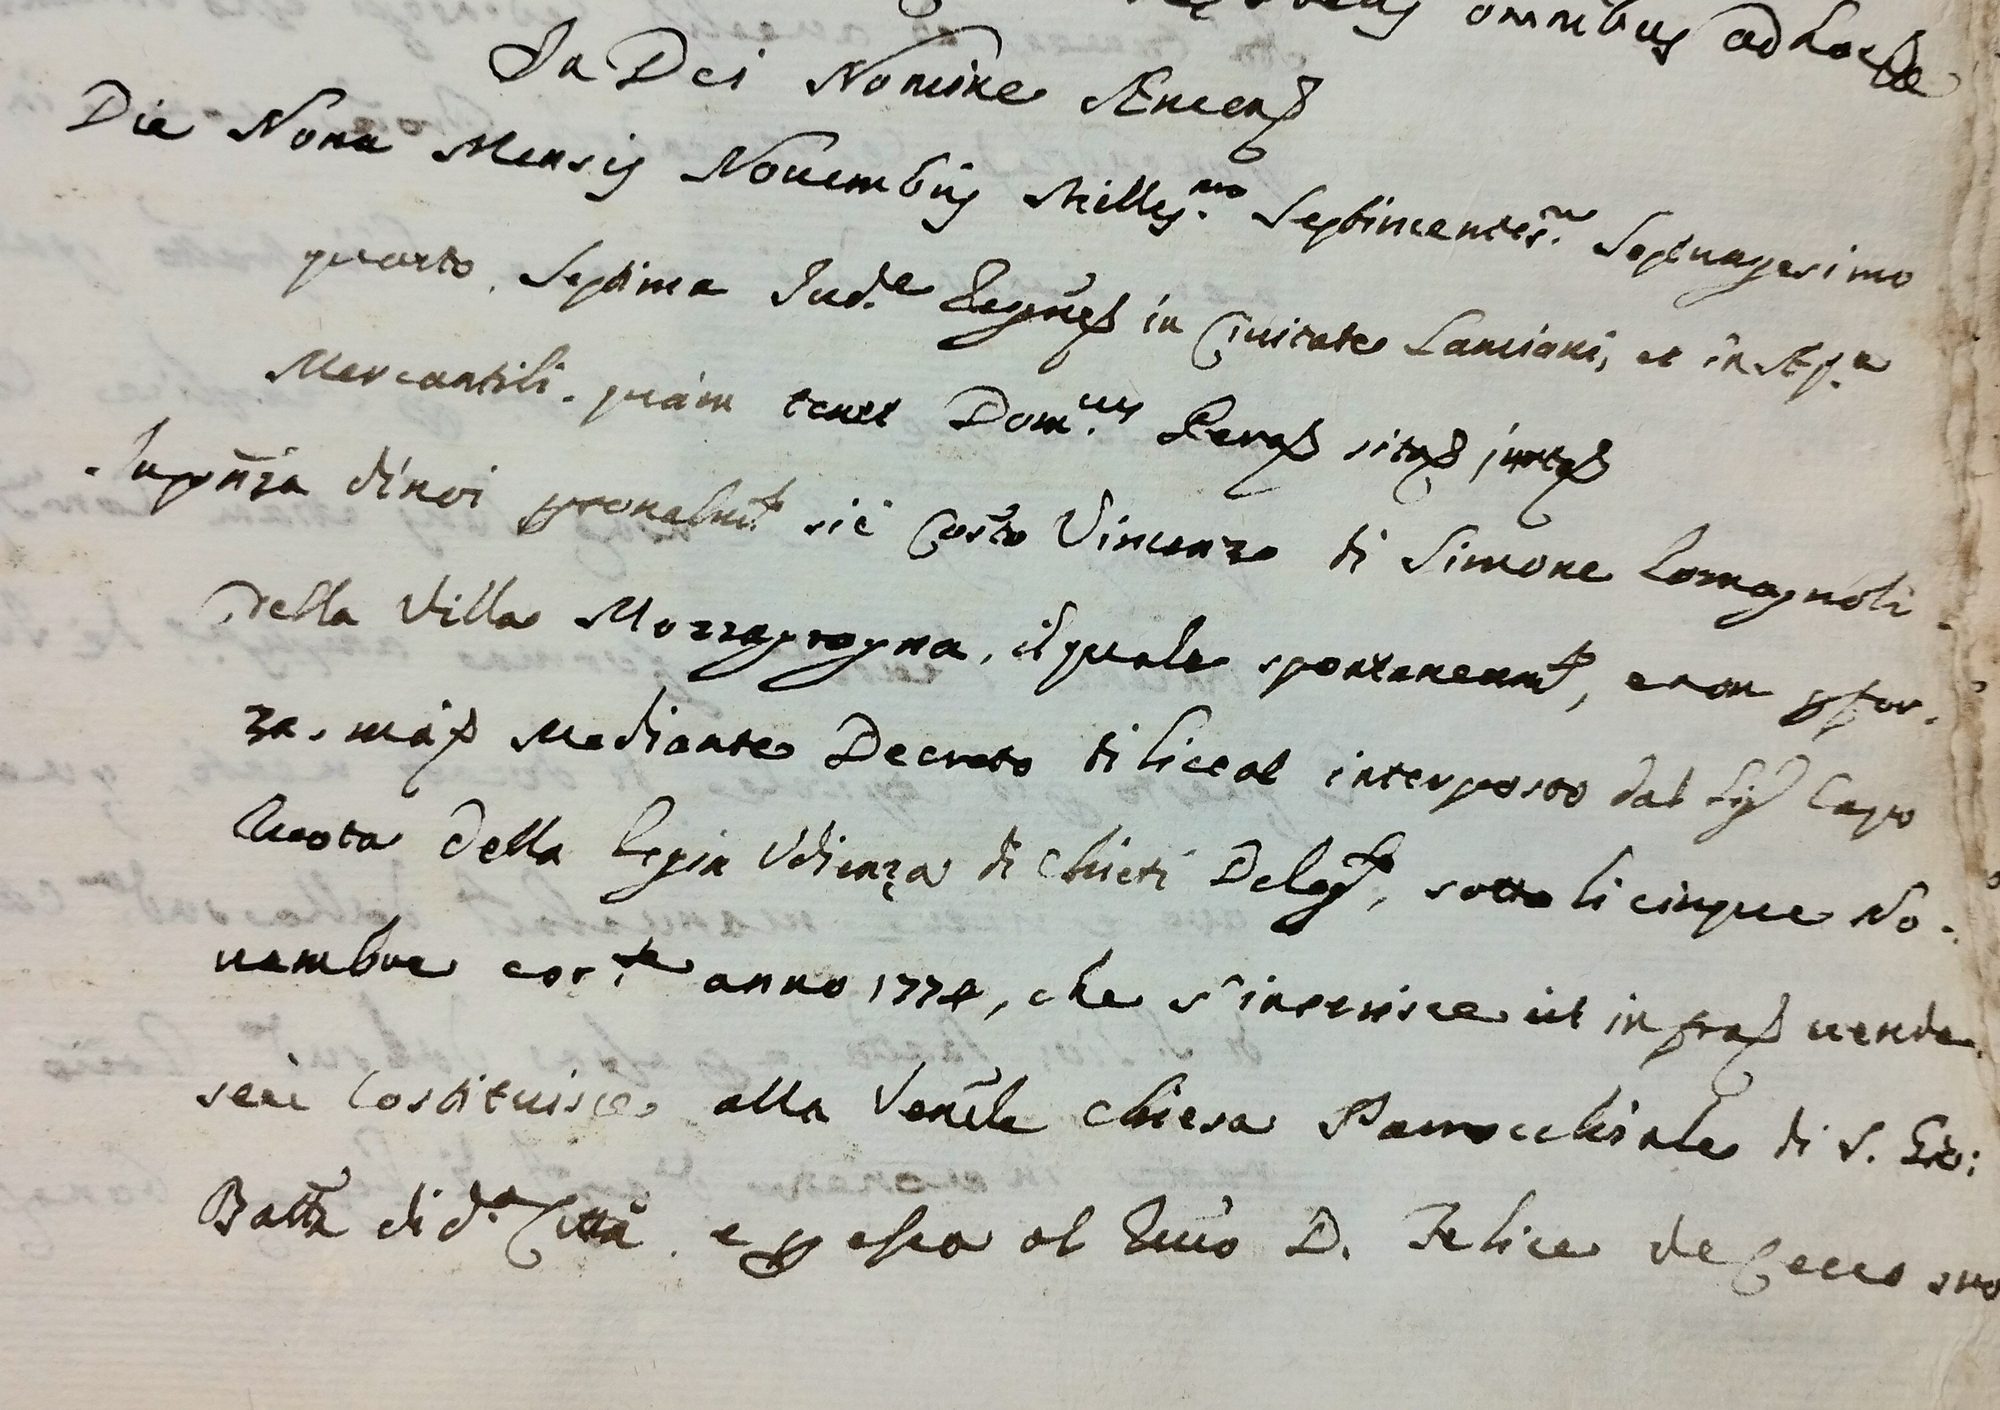 omnibus ad hoc &c
In Dei Nomine Amen &
Die Nona Mensis Novembris Milles.mo Septincentes.mo Septuagesimo
quarto, Septima Ind.e Regnē & in Civitate Lanciani, et in Ap.a
Mercantili, quám tenet Dom.cus & sita & juxta &
In pñza di noi ſonalmt. si è Costo Vincenzo di Simone Romagnoli
della Villa Mozzagrogna, il quale spontaneamte, e non p for-
za, má & Mediante Decreto di liceat interposto dal Sig.r Capo
Ruota della Regia Udienza di Chieti Deleg.to, sotto li cinque No-
vembre cor.te anno 1774, che s'inserisce ut infra & vende,
seú Costituisce alla Veñle Chiesa Parrocchiale di S. Gio:
Batta di d.a Città, e p essa al D. Felice de Cecco suo